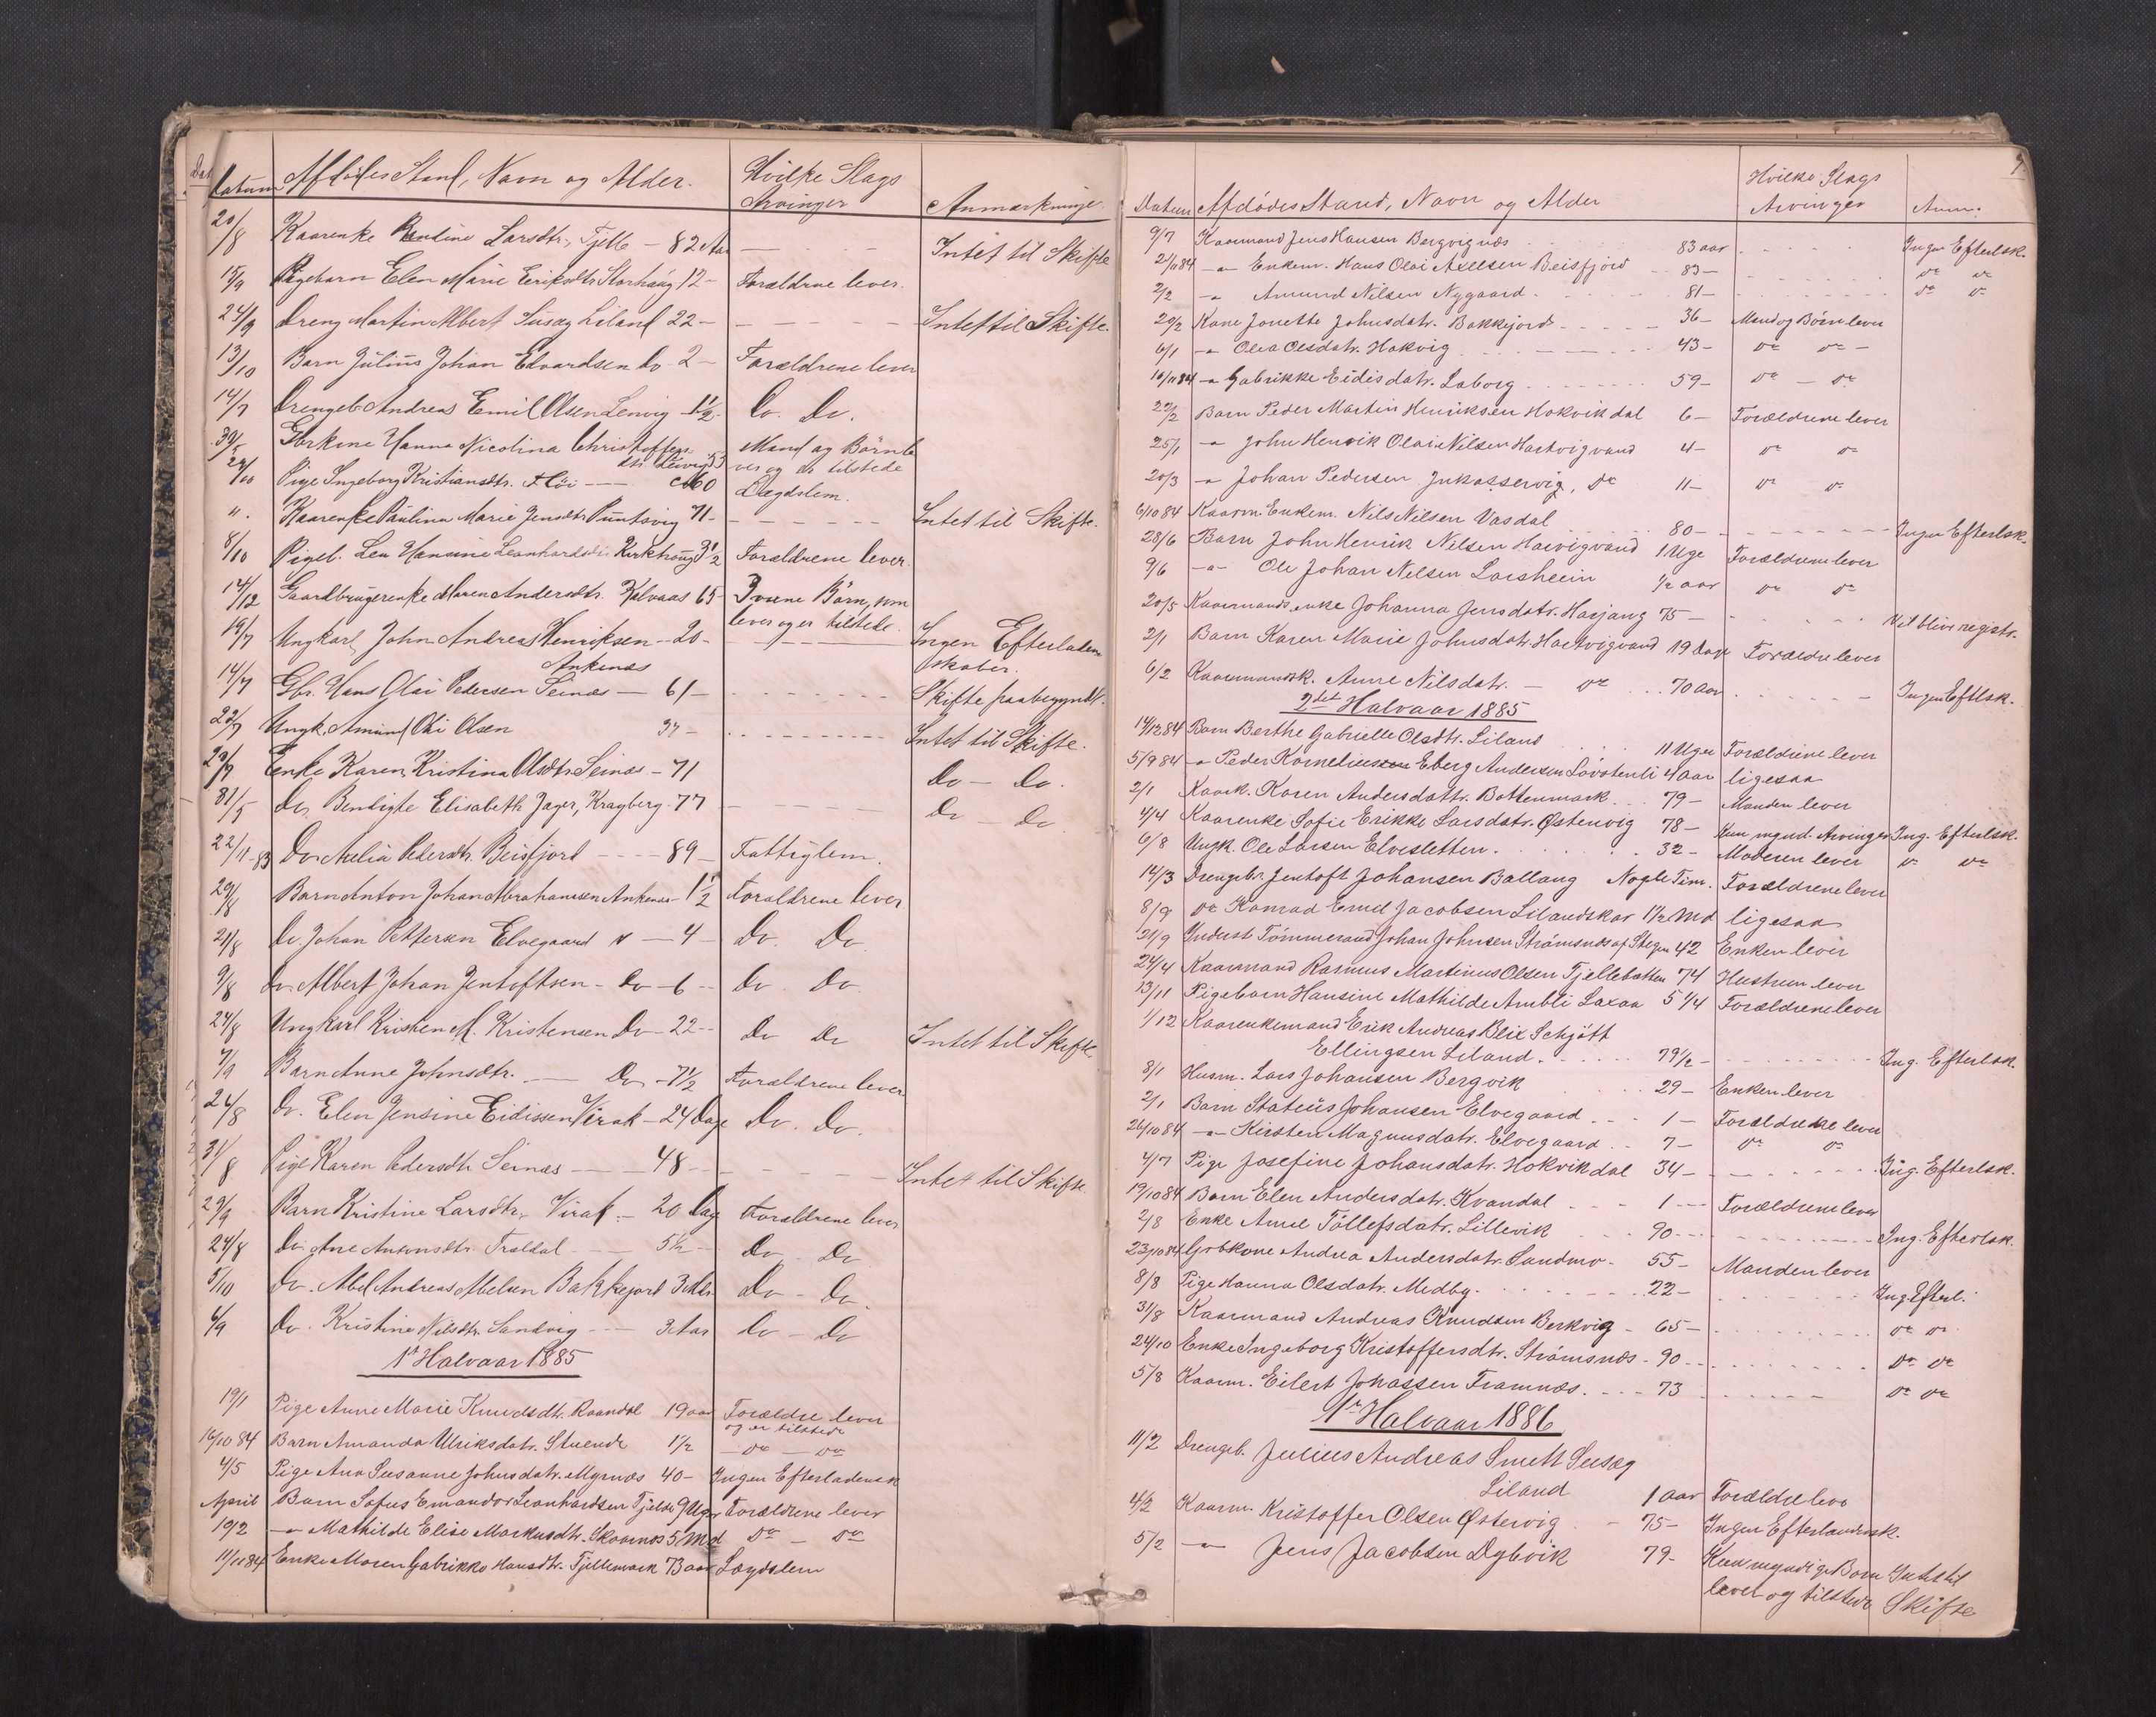 Datum Afdødes Stand, Navn og Alder. Hvilke Slags Arvinger Anmærkninge.
20/8 Kaarenke Larsdtr. Fjelb - 82 Aar - - - Intet til Skifte
15/9 Pigebarn Elen Marie Eriksdtr Storhaug 12 - Forældrene lever.
24/9 Dreng Martin Albert Susæg Liland 22 - - - - Intet til Skifte.
13/10 Barn Julius Johan Edvardsen do 2 - Forældrene lever
14/7 Drengeb. Andreas Emil Olsen Lenvig 1 1/2 - Do. Do.
30/5 Gbrkone Hanna Nicolina Christoffers- Mand og Börn le
dtr. Lenvig 53 ver og er tilstede
24/10 Pige Ingeborg Kristiansdtr. - 60 Lægdslem.
". Kaarenke Paulina Marie Jensdtr Puntsvig 71 - - - - Intet til Skifte.
8/10 Pigeb. Lea Hansine Leonhardsdtr. Kirkhaug 3 1/2 Forældrene lever.
14/12 Gaardbrugerenke Maren Andersdtr. Kalvaas 65 - 3 vxne Börn, som
lever og er tilstede.
19/7 Ungkarl John Andreas Henriksen - 20 - - - Ingen Efterladen
Ankenæs skaber.
14/7 Gbr. Hans Olai Pedersen Seines - 61 - - - - Skifte paabegyndt.
22/7 Ungk. Amund Oli Olsen 37 - - - - Intet til Skifte.
29/9 Enke Karen Kristina Olsdtr Seines - 71 Do - Do.
31/5 Do. Bendigte Elisabeth Jager, Kragberg - 77 - - - Do - Do
22/11-83 Do. Aelia Pedersdtr. Beisfjord - - - 89 - Fattiglem.
29/8 Barn Anton Johan Abrahamsen Ankenæs - 1 1/2 Forældrene lever
21/8 Do. Johan Pettersen Elvegaard - 4 - Do. Do.
9/8 Do. Albert Johan Jentoftsen - Do - 6 - Do. Do.
24/8 Ungkarl Kristen M. Kristensen Do - 22 - Do Do Intet til Skifte.
7/9 Barn Anne Johnsdtr. - Do - 7 1/2 Forældrene lever
24/8 Do. Elen Jensine Eidissen Virak - 24 Dage Do. Do.
31/8 Pige Karen Pedersdtr Seines - - 48 - - - - Intet til Skifte
29/9 Barn Kristine Larsdtr, Virak. - 20 Dag Forældrene lever
24/8 Do. Ane Antonsdtr. Traldal - - 5 1/2 - Do - Do
5/10 Do. Abel Andreas Abelsen Bakkejord 3 Do - Do.
6/9 Do. Kristine Nilsdtr. Sandvig - - 3 Aar Do - Do
1st Halvaar 1885
19/1 Pige Anne Marie Knudsdtr. Raandal 19 aar Forældre lever
og er tilstede
16/10 84 Barn Amanda Ulriksdatr. Stuende 1 1/2 - do - do
4/5 Pige Ana Susanne Johnsdatr. Myrnes 40 - Ingen Efterladensk
April Barn Sofus Emandor Leonhardsen Fjelde 9 Uger Forældrene lever
19/2 -"- Mathilde Elise Markusdtr. Skoarnes 5 Md do - do
11/11 84 Enke Maren Gabrikke Hansdtr. Fjellemark 73 aar Lægdslem
9
Datum Afdødes Stand, Navn og Alder Hvilke Slags Arvinger Anm.
9/7 Kaarmand Jens Hansen Bergvignes 83 aar - - - Ingen Efterlsk.
21/11 84 -"- Enkem. Hans Olai Axelsen Beisfjord 83 - do do
2/2 -"- Amund Nilsen Nygaard 81 - - - - do do
20/2 Kone Jonetta Johnsdatr. Bakkejord - - - 36 - Mand og Börn lever
6/1 -"- Olea Olsdatr. Hakvig - - - 43 - do do -
16/11 84 -"- Gabrikke Eidisdatr. Laberg 59 - do - do
22/2 Barn Peder Martin Henriksen Hokvikdal 6 - Forældrene lever
25/1 -"- John Henrik Olai Nilsen Hartvigvand 4 - do do
20/3 -"- Johan Pedersen Jukasservig, do 11 - do do
6/10 84 Kaarm. Enkem. Nils Nilsen Vasdal 80 - - - - Ingen Efterlsk.
28/6 Barn John Henrik Nilsen Harvigvand 1 Uge Forældrene lever
9/6 -"- Ole Johan Nilsen Larsheim 1/2 aar do do
20/5 Kaarmands enke Johanna Jensdatr. Harjang 75 - - - - Vil blive registr.
2/1 Barn Karen Marie Johnsdatr. Hartvigvand 19 Dage Forældre lever
6/2 Kaarmandsk. Anne Nilsdatr. - do 70 Aar - - - Ingen Eftlsk.
2det Halvaar 1885
14/12 84 Barn Berthe Gabrielle Olsdtr. Liland 11 Uger Forældrene lever
5/9 84 -"- Peder Kornelius Eberg Andersen Lövstenli 4 aar ligesaa
2/1 Kaark. Karen Andersdattr. Bottenmark 79 - Manden lever
4/4 Kaarenke Sofie Erikke Larsdatr. Østervig 78 - Kun mynd. Arvinger Ing. Efterlsk.
6/8 Ungk. Ole Larsen Elvesletten. 32 - Moderen lever do do
14/3 Drengebr. Jentoft Johansen Ballang Nogle Tim. Forældrene lever
8/9 do Konrad Emil Jacobsen Lilandskar 1 1/2 Md ligesaa
21/9 Inderst Tömmermand Johan Johnsen Strömsnes af Stegen 42 Enken lever
24/4 Kaarmand Rasmus Martinus Olsen Fjellebotten 74 Hustruen lever
13/11 Pigebarn Hansine Mathilde Ambli Laxaa 5 1/4 Forældrene lever
1/12 Kaarenkemand Erik Andreas Blix Schjött
Ellingsen Liland. 79 1/2 - - - - Ing. Efterlsk.
8/1 Husm. Lars Johansen Bergvik 29 - Enken lever
2/1 Barn Statius Johansen Elvegaard - - 1 - Forældrene lever
26/10 84 -"- Kirsten Magnusdatr. Elvegaard 7 - do do
4/7 Pige Josefine Johansdatr. Hokvikdal 34 - - - - Ing. Efterlsk.
19/10 84 Barn Elen Andersdatr. Kvandal - - 1 - - Forældrene lever
2/8 Enke Anne Töllefsdatr. Lillevik 90 - - - Ing. Efterlsk.
23/10 84 Grbkone Andrea Andersdatr. Sandmo - 55 - Manden lever
8/8 Pige Hanna Olsdatr. Medby. 22 - - - Ing. Efterl.
31/8 Kaarmand Andreas Knudsen Berkvig - 65 - do do
24/10 Enke Ingeborg Kristoffersdtr. Strömsnes - 90 - - do do
5/8 Kaarm. Eilert Johassen Framnes. - - 73 - - - do do
1st Halvaar 1886
11/2 Drengeb. Julius Andreas Smett Susæg
Liland 1 aar Forældre leve
4/2 Kaarm. Kristoffer Olsen Østervig - 75 - Ingen Efterladensk.
5/2 -"- Jens Jacobsen Dybvik 79 - Kun myndige Börn Intet til
lever og tilstede Skifte